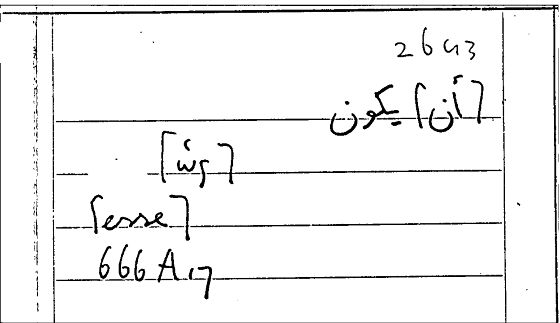 26a3
[أن] يكون
[ὡς]
[esse]
666A17